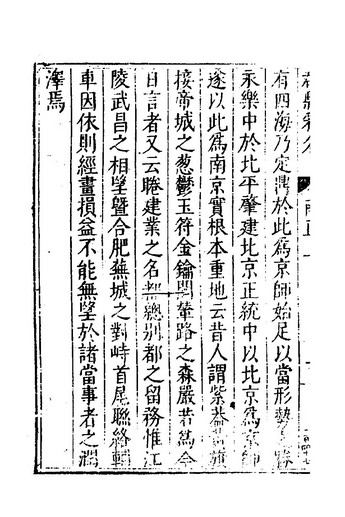 有四海乃定鼎於此爲京師始足以當形勢之
永樂中於北平肇建北京正統中以北京爲京師
遂以此爲南京實根本重地云昔人謂紫蓋黃旗
接帝城之葱鬱玉符金鑰閟輦路之森嚴若爲今
日言者又云睠建業之名都總別都之留務惟江
陵武昌之相望曁合肥蕪城之對峙首尾聯絡輔
車因依則經畫損益不能無望於諸當事者之潤
澤焉